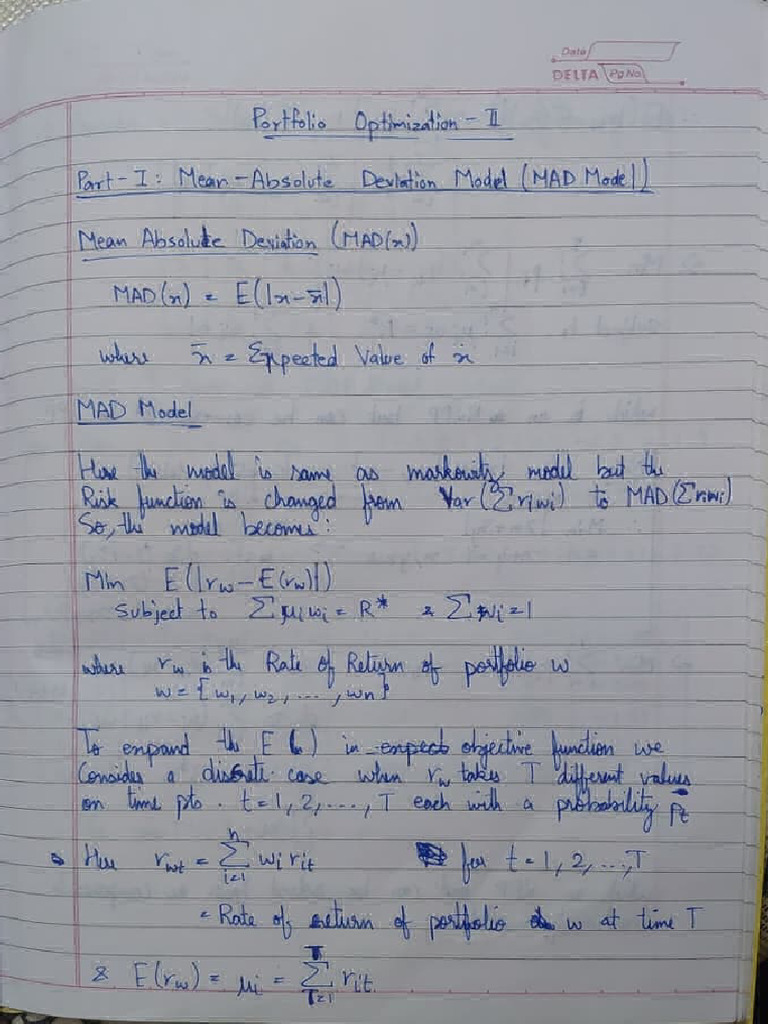 Date
DELTA Pg No
Portfolio Optimization - II
Part - I : Mean - Absolute Deviation Model (MAD Model)
Mean Absolute Deviation (MAD(x))
MAD(x) = E(|x - x̄|)
where x̄ = Expected Value of x
MAD Model
Here the model is same as markowitz model but the
Risk function is changed from Var(Σriwi) to MAD(Σriwi)
So, the model becomes :
Min E(|rw - E(rw)|)
Subject to Σ μiwi = R* & Σ wi = 1
where rw is the Rate of Return of portfolio w
w = {w1, w2, ..., wn}
To expand the E( ) in objective function we
Consider a discrete case when rw takes T different values
on time pts. t = 1, 2, ..., T each with a probability pt
Here rwt = Σ(i=1 to n) wi rit for t = 1, 2, ..., T
= Rate of return of portfolio w at time T
& E(rw) = μi = Σ(T=1 to T) rit